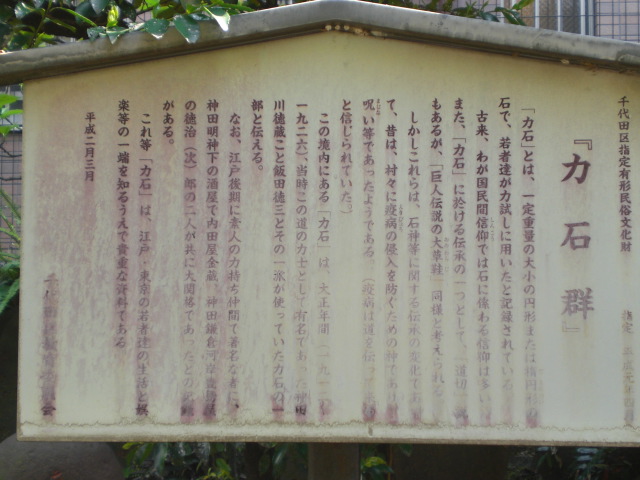 千代田区指定有形民俗文化財
『力石群』
「力石」とは、一定重量の大小の円形または楕円形の
石で、若者達が力試しに用いたと記録されている
古来、わが国民間信仰では石に係わる信仰は多い
また、「力石」に於ける伝承の一つとして、「道切
もあるが、「巨人伝説の大草鞋」同様と考えられる
しかしこれらは、石神等に関する伝承の変化であ
て、昔は、村々に疫病の侵入を防ぐための神であ
呪い等であったようである (疫病は道を伝っ
と信じられていた)
この境内にある「力石」は、大正年間(一九一
一九二六)、当時この道の力士として有名であった神田
川徳蔵こと飯田徳三とその一派が使っていた力石の一
部と伝える。
なお、江戸後期に素人の力持ち仲間で著名な者に、
神田明神下の酒屋で内田屋金蔵、神田鎌倉河岸
の徳治(次)郎の二人が共に大関格であったとの
がある。
これ等「力石」は、江戸・東京の若者達の生活と娯
楽等の一端を知るうえで貴重な資料である
平成二月三月